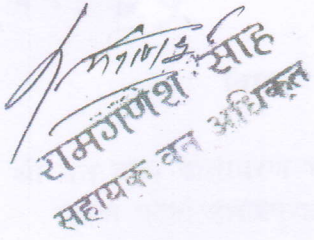 रामगणेश साह
सहायक वन अधिकृत